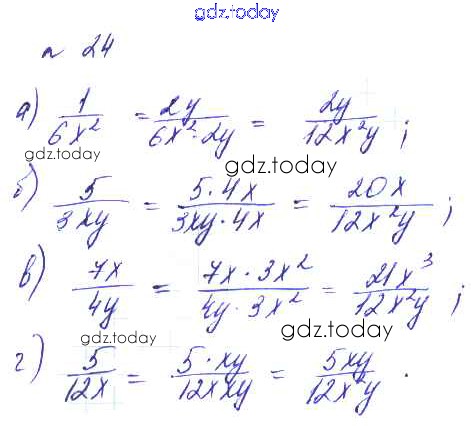 gdz.today
№ 24
а) 1/6x² = 2y/6x²·2y = 2y/12x²y ;
gdz.today gdz.today
б) 5/3xy = 5·4x/3xy·4x = 20x/12x²y ;
в) 7x/4y = 7x·3x²/4y·3x² = 21x³/12x²y ;
gdz.today gdz.today
г) 5/12x = 5·xy/12xxy = 5xy/12x²y .